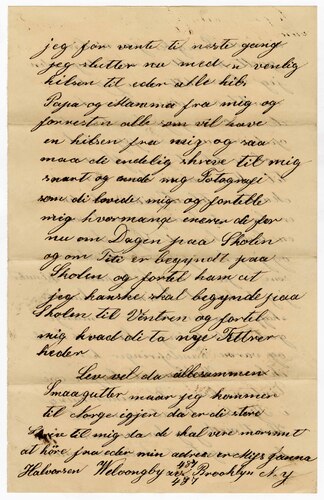 jeg for vente ti neste gang
jeg slutter nu med en venlig
hilsen til eder alle hils
Papa og Mamma fra mig og
forresten alle som vil have
en hilsen fra mig og saa
maa di endelig skrive til mig
snart og sende mig Fotografi
som di lovede mig og fortelle
mig hvormange enerer de for
nu om Dagen paa Skolen
og om Titi er begyndt paa
Skolen og fortil ham at
jeg kanske skal begynde paa
Skolen til Vintren og fortil
mig hvad di ta nye
heder
Lev vel da allesammen
Smaagutter naar jeg kommer
til Norge igjen da er di store
Skriv til mig da de skal være morsomt
at höre fra eder min adres er Miss
Halvorsen av Brooklyn N. y
457